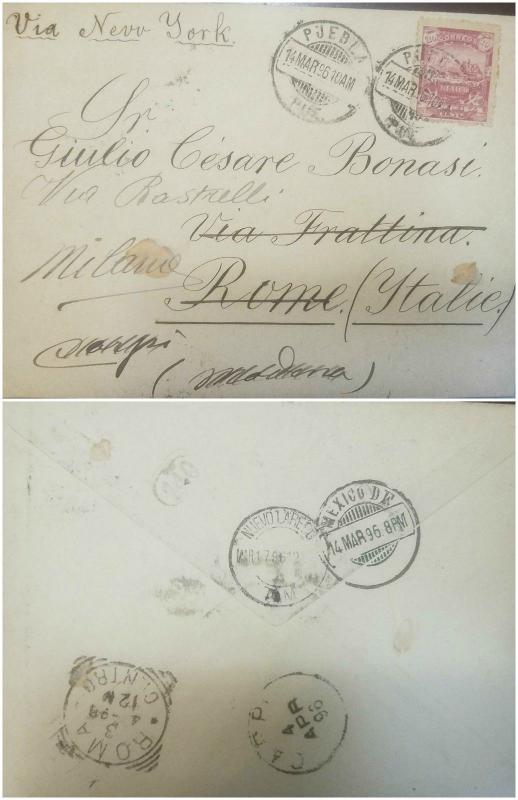 Via New York.
PUEBLA
14 MAR 96 10AM
PUE.
14 MAR 96
CORREOS
MEXICO
CENTS
Sr.
Giulio Césare Bonasi.
Via Rastrelli
Via Frattina.
Milano
Rome. (Italie.)
Carpi
(Modena)
240
NUEVO LAREDO
MAR 17 96 12
A M
MEXICO D F
14 MAR. 96. 8 PM
ROMA
CENTRO
3
4-96
12 M
CARPI
4
APR
96